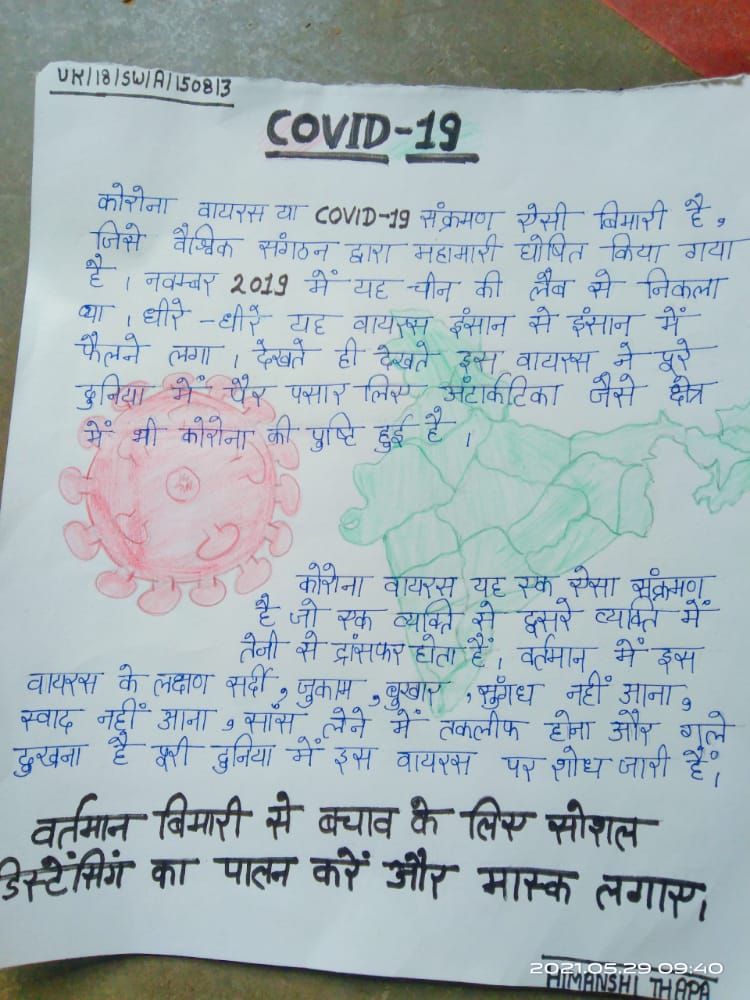 UK/18/SW/A/150813
COVID-19
कोरोना वायरस या COVID-19 संक्रमण ऐसी बिमारी है,
जिसे वैश्विक संगठन द्वारा महामारी घोषित किया गया
है। नवम्बर 2019 में यह चीन की लैब से निकला
था। धीरे-धीरे यह वायरस इंसान से इंसान में
फैलने लगा। देखते ही देखते इस वायरस ने पूरे
दुनिया में पैर पसार लिए अंटार्कटिका जैसे क्षेत्र
में भी कोरोना की पुष्टि हुई है।
कोरोना वायरस यह एक ऐसा संक्रमण
है जो एक व्यक्ति से दूसरे व्यक्ति में
तेजी से ट्रांसफर होता हैं। वर्तमान में इस
वायरस के लक्षण सर्दी, जुकाम, बुखार, सुगंध नहीं आना,
स्वाद नहीं आना, सांस लेने में तकलीफ होना और गले
दुखना है पूरी दुनिया में इस वायरस पर शोध जारी हैं।
वर्तमान बिमारी से बचाव के लिए सोशल
डिस्टेंसिंग का पालन करें और मास्क लगाए।
2021.05.29 09:40
HIMANSHI THAPA